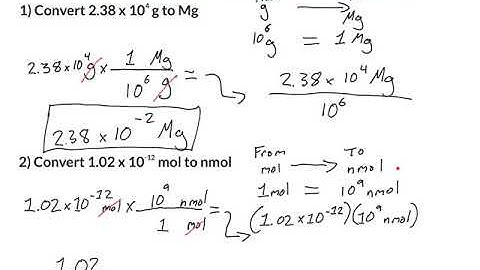 1) Convert 2.38 x 10⁴ g to Mg
g → Mg
10⁶ g = 1 Mg
2.38 x 10⁴ g x 1 Mg / 10⁶ g =
2.38 x 10⁴ Mg / 10⁶
2.38 x 10⁻² Mg
2) Convert 1.02 x 10⁻¹² mol to nmol
From To
mol → nmol
1 mol = 10⁹ nmol
1.02 x 10⁻¹² mol x 10⁹ nmol / 1 mol =
(1.02 x 10⁻¹²)(10⁹ nmol)
1.02